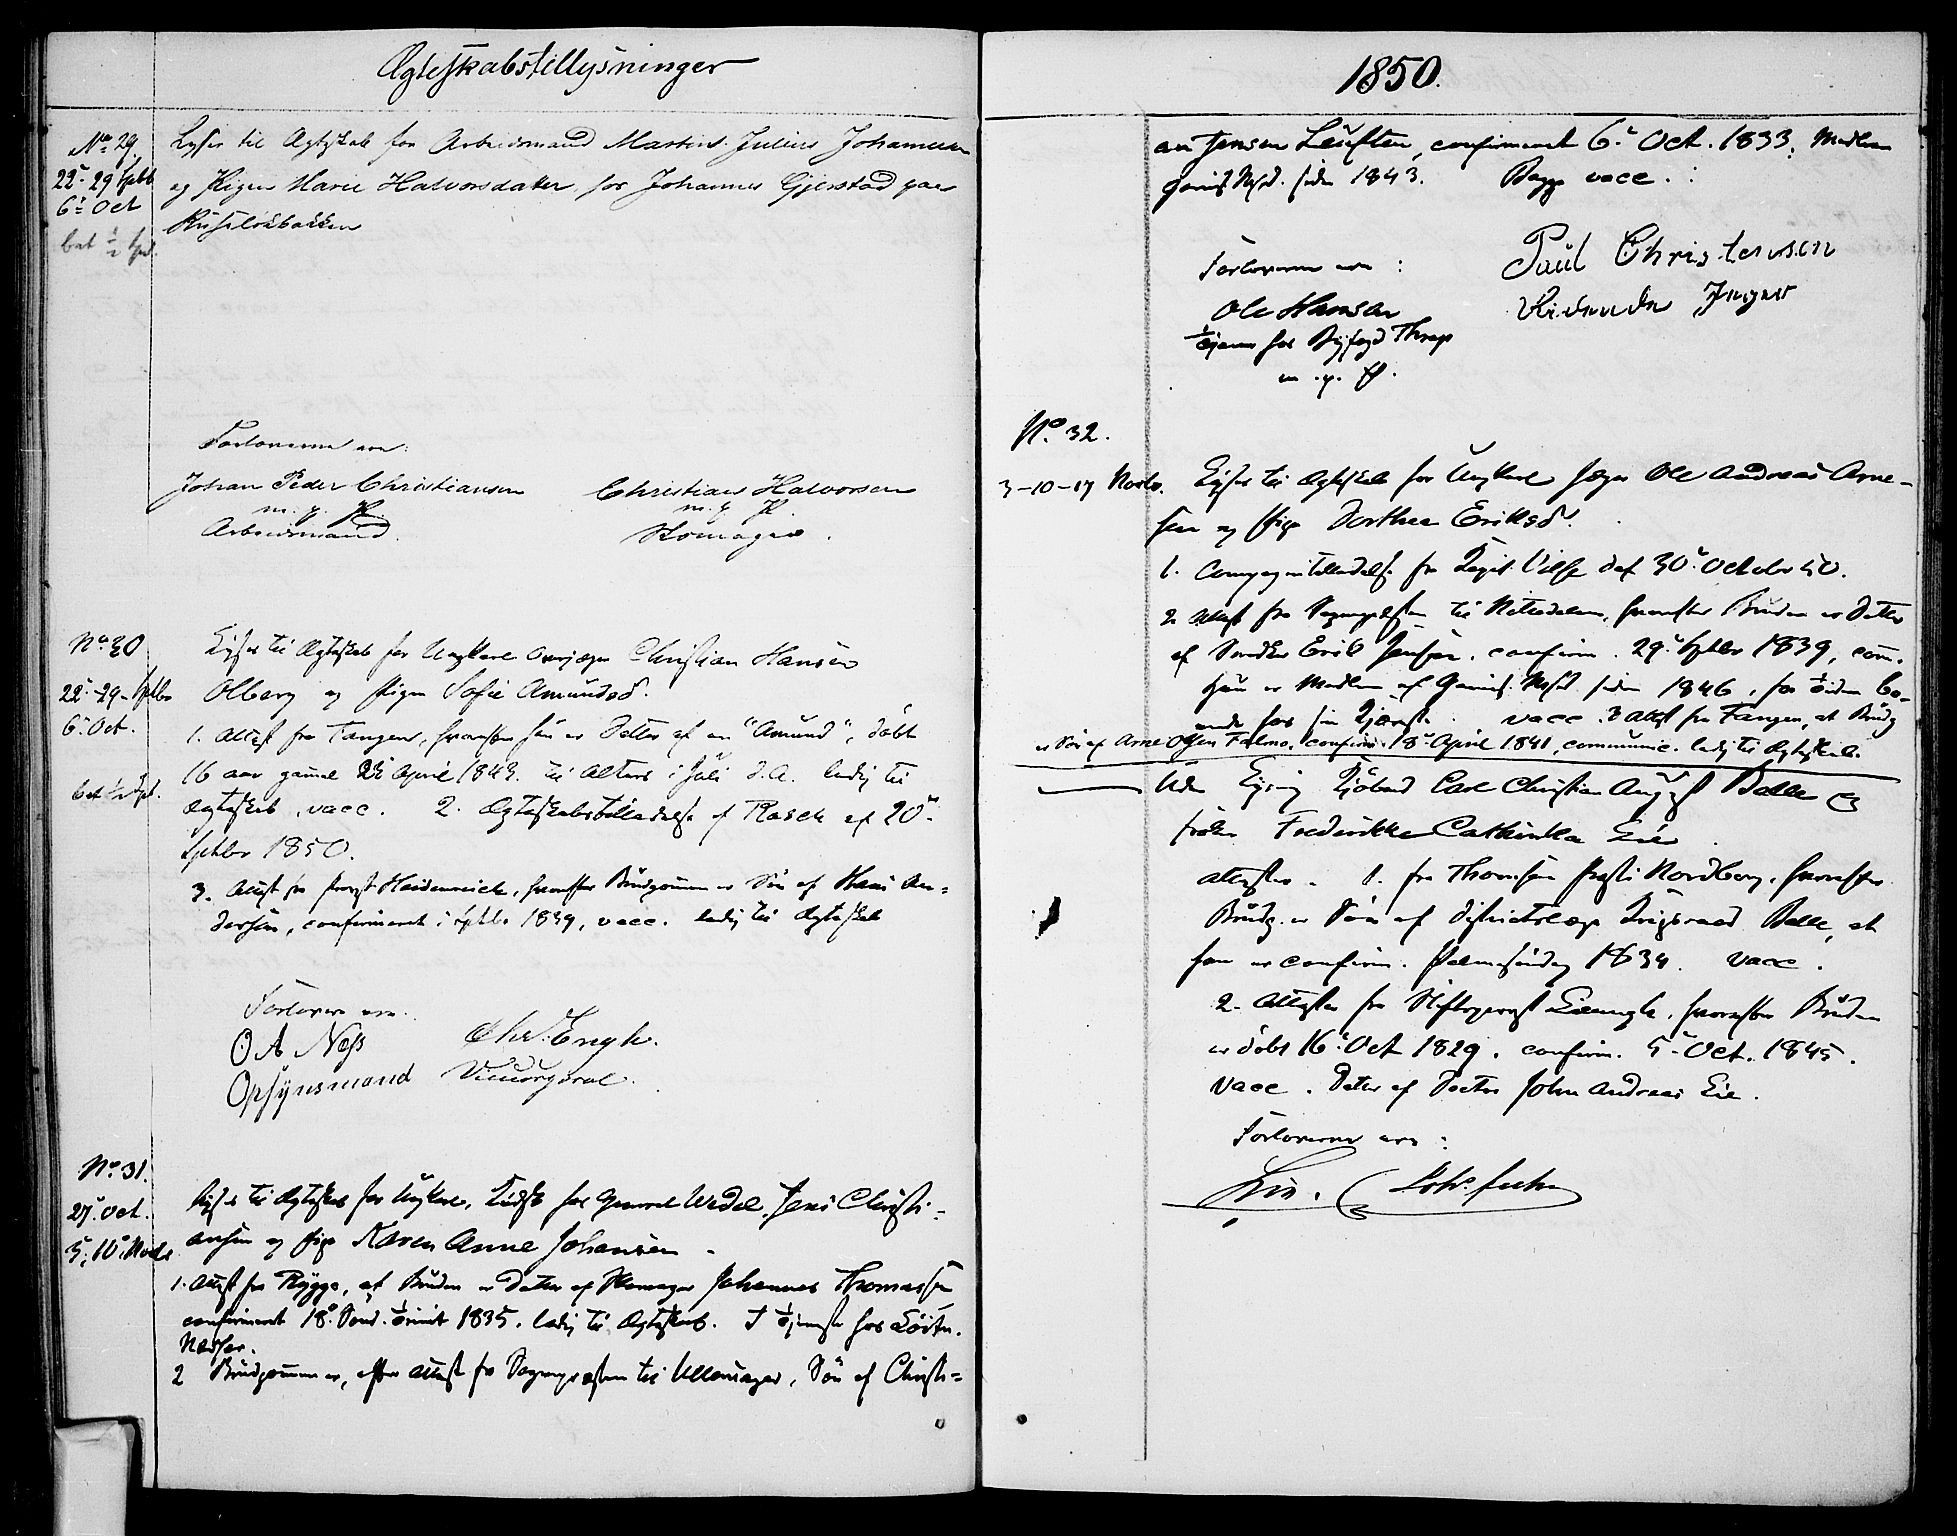 Ægteskabstillysninger
No 29.
22- 29 Sptb
6te Oct
bet ½ Spd.
Lyses til Ægteskab for Arbeidsmand Martin Julius Johannesen
og Pigen Marie Halvorsdatter, for Johannes Gjerstad paa
Ruseløkbakken
Forloverne ere:
Johan Peder Christiansen
m. p. P.
Arbeidsmand.
Christian Halvorsen
m. p. P.
Skomager.
No 30
22- 29- Sptbr
6 Oct.
bet ½ Spd.
Lyses til Ægteskab for Ungkarl Overjæger Christian Hansen
Olberg og Pigen Sofie Amundsd.
1. Attest fra Tangen, hvorefter hun er Datter af en "Amund", døbt
16 aar gammel April 1843. til Alters i Juli d. A. ledig til
Ægteskab, vacc. 2. Ægteskabstilladelse af Rasch af 20
Sptbr 1850.
3. Attest fra Provst Heidenreich, hvorefter Brudgommen er Søn af Hans An-
dersen, confirmeret i Sptbr 1839, vacc. ledig til Ægteskab
Forlovere ere:
O A Næss
Opsynsmand
Chr. Engh.
Viceorporal.
No 31.
27 Oct.
3, 10 Novbr
Lyses til Ægteskab for Ungkarl, Kudsk hos General Wedel, Jens Christi-
ansen og Pige Karen Anne Johansen.
1. Attest fra Rygge, at Bruden er Datter af Skomager Johannes Thomassen
confirmeret 18 Sønd. Trinit 1835. ledig til Ægteskab. I Tjeneste hos Løitn.
Næser.
2 Brudgommen er, efter Attest fra Sognepræsten til Ullensager, Søn af Christi=
1850.
an Jensen Løuften, confirmeret 6 Oct. 1833. Medlem
Garnis. Mhd. siden 1843. Begge vacc.
Forloverne ere:
Ole Hansen
Tjener hos Byfogd Thrap
m. p. P.
Paul Christensen
Ridende Jæger
No. 32.
3-10-17 Novbr.
Lyses til Ægteskab for Ungkarl Jæger Ole Andreas Arne-
sen og Pige Dorthea Eriksd.
1. Compagnitilladelse fra Capit. Vilse dat 30 October 50.
2. Attest fra Sognepræsten til Nittedalen, hvorefter Bruden er Datter
af Smeden Erik Jensen. confirm. 29 Sptbr 1839, com.
Hun er Medlem af Garnis. Mhd. siden 1846, for Tiden bo-
ende hos sin vacc. 3 Attest fra Tangen, at Brudg
er Søn af Arne Olsen Falmo, confirm. 18 April 1841, communic. ledig til Ægteskab.
Uden Lysning Kjøbmd Carl Christian August Balle og
Frøken Frederikke Cathinka Eie
Attester. 1. fra Thomsen Præst i Nordborg, hvorefter
Brudg. er Søn af Districtslæge Krigsraad Balle, at
han er confirm. Palmesøndag 1834. vacc.
2. Attester fra Stiftsprovst hvorefter Bruden
er døbt 16 Oct 1829. confirm. 5 Oct. 1845.
vacc. Datter af Doctor John Andreas Eie.
Forloverne ere:
Eie.